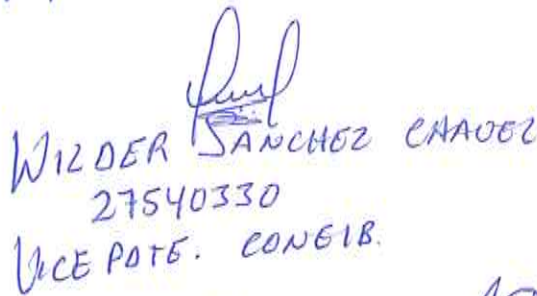 WILDER SANCHEZ CHAVEZ
27540330
VICE PDTE. CONEIB.